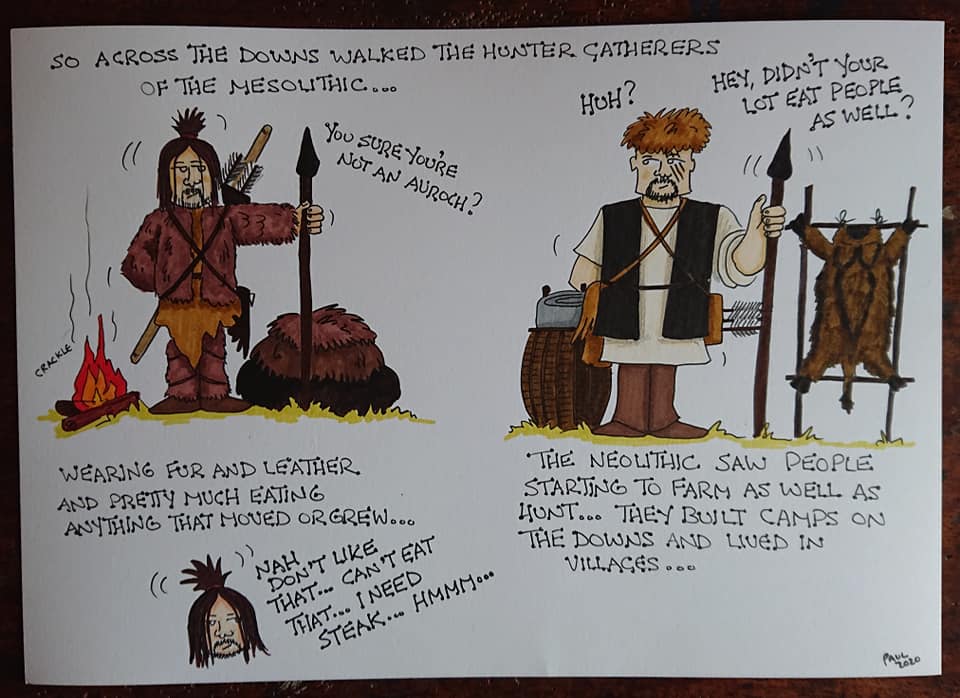 SO ACROSS THE DOWNS WALKED THE HUNTER GATHERERS
OF THE MESOLITHIC...
YOU SURE YOU'RE
NOT AN AUROCH?
CRACKLE
WEARING FUR AND LEATHER
AND PRETTY MUCH EATING
ANYTHING THAT MOVED OR GREW...
NAH
DON'T LIKE
THAT... CAN'T EAT
THAT... I NEED
STEAK... HMMM...
HUH?
HEY, DIDN'T YOUR
LOT EAT PEOPLE
AS WELL?
THE NEOLITHIC SAW PEOPLE
STARTING TO FARM AS WELL AS
HUNT... THEY BUILT CAMPS ON
THE DOWNS AND LIVED IN
VILLAGES...
PAUL
2020